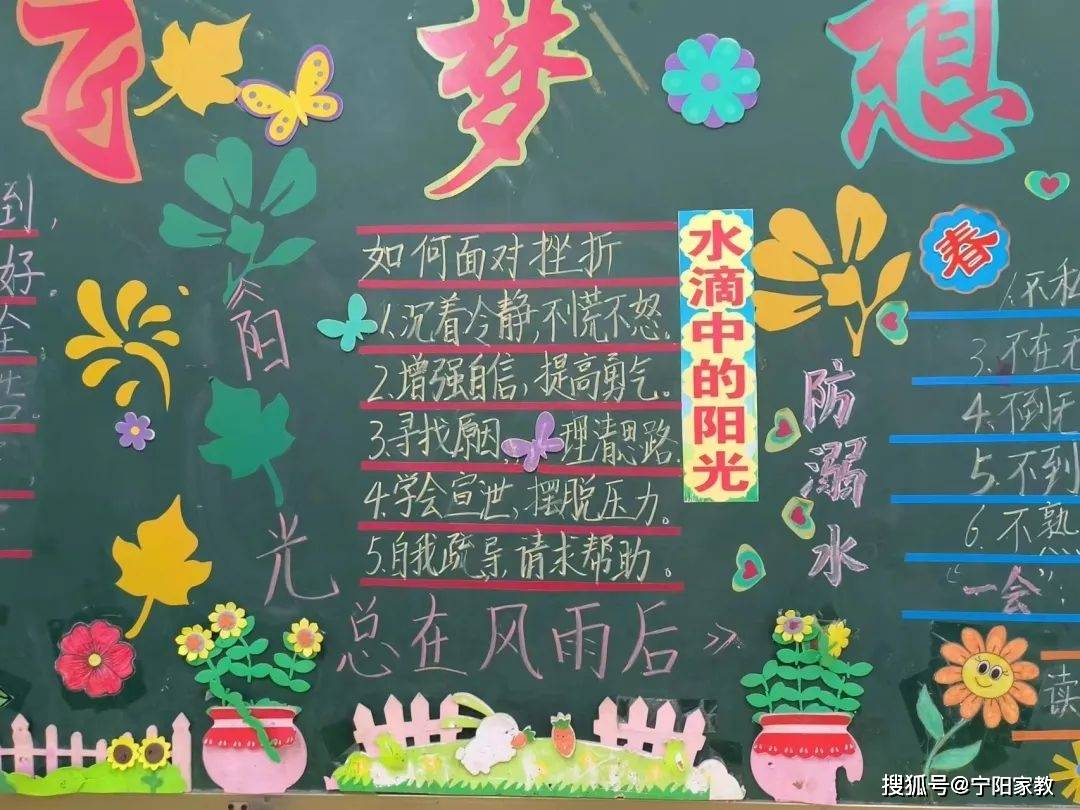 梦想
到,
好.
全
告。
《阳光总在风雨后》
如何面对挫折
1.沉着冷静,不慌不怒.
2.增强自信,提高勇气。
3.寻找原因,理清思路.
4.学会宣泄,摆脱压力。
5.自我疏导,请求帮助。
水滴中的阳光
防溺水
春
1.不私
3.不在无
4.不到无
5.不到
6.不熟
"一会":
读
搜狐号@宁阳家教